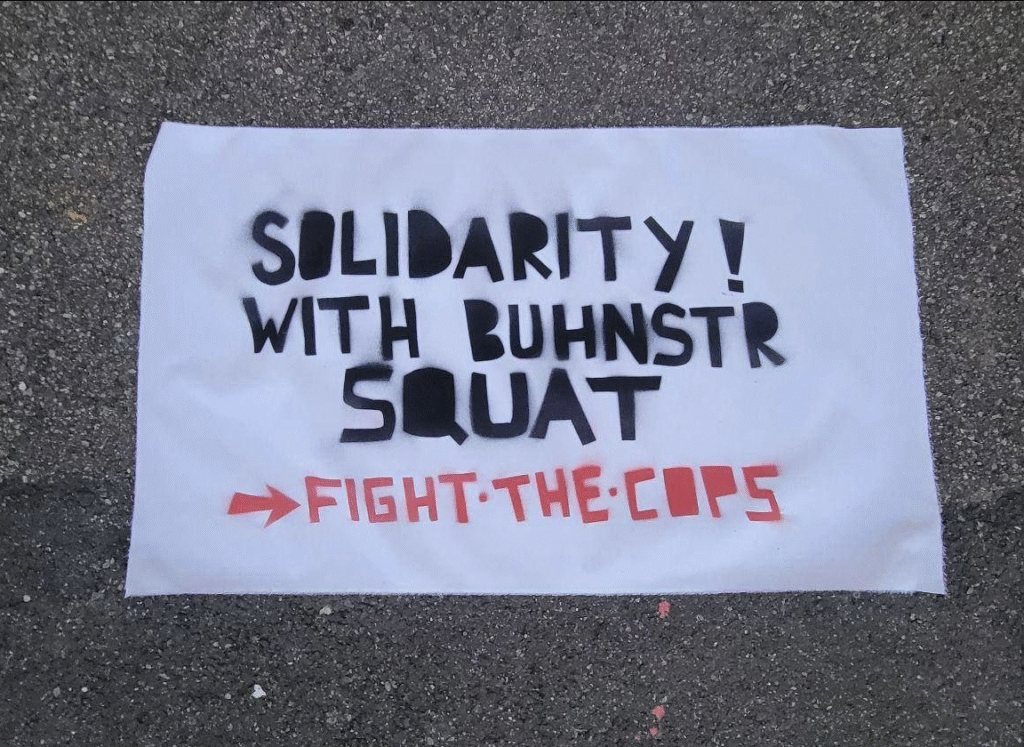 SOLIDARITY!
WITH BUHNSTR
SQUAT
→FIGHT·THE·COPS